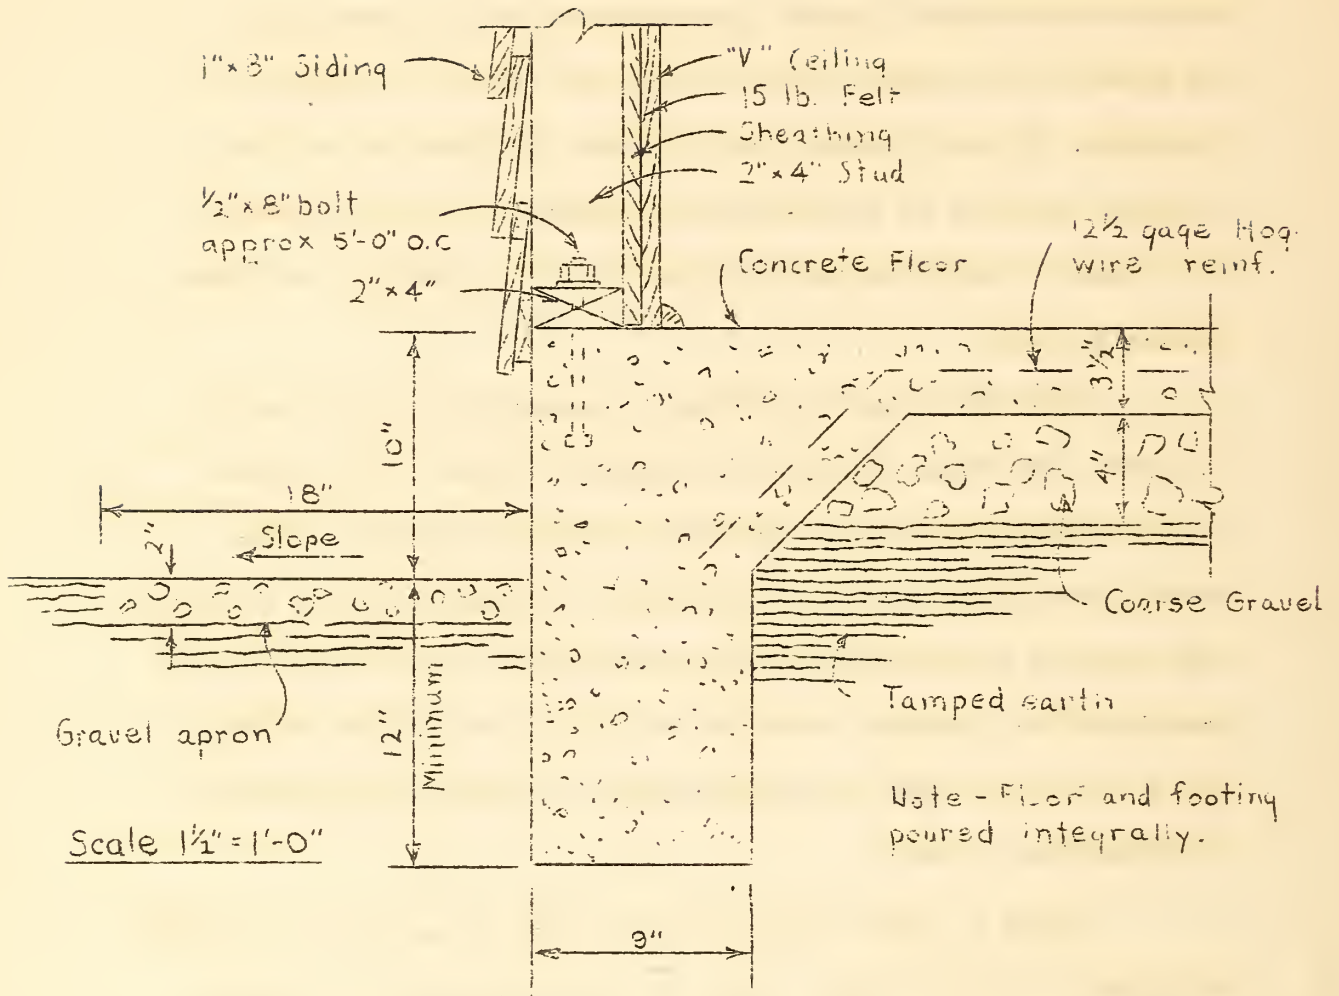 1"×8" Siding
"V" Ceiling
15 lb. Felt
Sheathing
2"×4" Stud
½"×8" bolt
approx 5'-0" o.c
2"×4"
Concrete Floor
12½ gage Hog
wire reinf.
3½"
10"
4"
18"
2"
Slope
Coarse Gravel
12"
Minimum
Tamped earth
Gravel apron
Note - Floor and footing
poured integrally.
Scale 1½" = 1'-0"
9"